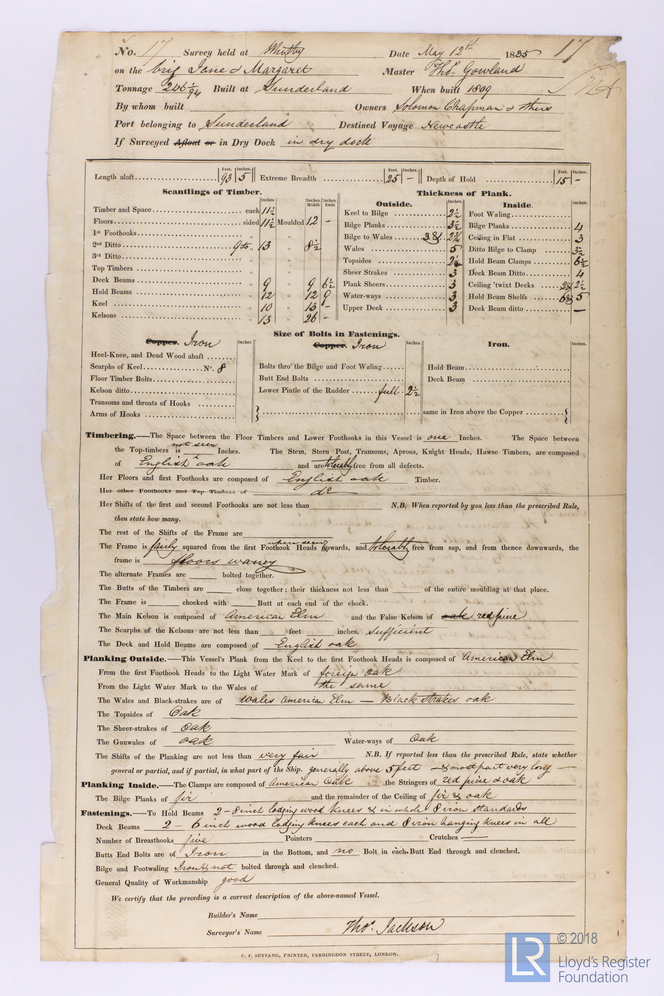 No. 17 Survey held at Whitby Date May 12th 1835 17
on the brig Jane & Margaret Master Thos. Gowland
Tonnage 246 2/94 Built at Sunderland When built 1809
By whom built Owners Solomon Chapman & others
Port belonging to Sunderland Destined Voyage Newcastle
If Surveyed Afloat or in Dry Dock in dry dock
Length aloft Feet. 93 Inches. 5 Extreme Breadth Feet. 25 Inches. - Depth of Hold Feet. 15 Inches. -
Scantlings of Timber.
Inches. Inches. Middl. Inches. Ends
Timber and Space each 11½
Floors sided 11½ Moulded 12 -
1st Foothooks
2nd Ditto 13 8½
3rd Ditto
Top Timbers
Deck Beams 9 9 6½
Hold Beams 12 12 9
Keel 10 13 -
Kelsons 13 26 -
Thickness of Plank.
Outside.
Inches.
Keel to Bilge 2½
Bilge Planks 3½
Bilge to Wales
Wales 5
Topsides 2½
Sheer Strakes 3
Plank Sheers 3
Water-ways 3
Upper Deck 3
Inside.
Inches.
Foot Waling
Bilge Planks 4
Ceiling in Flat 3
Ditto Bilge to Clamp 3½
Hold Beam Clamps 6½
Deck Beam Ditto 4
Ceiling 'twixt Decks 2½
Hold Beam Shelfs 5
Deck Beam ditto -
Size of Bolts in Fastenings.
Copper. Iron
Inches
Heel-Knee, and Dead Wood abaft
Scarphs of Keel No. 8
Floor Timber Bolts
Kelson ditto
Transoms and throats of Hooks
Arms of Hooks
Copper. Iron
Inches
Bolts thro' the Bilge and Foot Waling
Butt End Bolts
Lower Pintle of the Rudder full 2½
Iron.
Inches.
Hold Beam
Deck Beam
same in Iron above the Copper
Timbering.—The Space between the Floor Timbers and Lower Foothooks in this Vessel is one Inches. The Space between
the Top-timbers is not seen Inches. The Stem, Stern Post, Transoms, Aprons, Knight Heads, Hawse Timbers, are composed
of English oak and are tolerably free from all defects.
Her Floors and first Foothooks are composed of English oak Timber.
Her other Foothooks and Top Timbers of do
Her Shifts of the first and second Foothooks are not less than N.B. When reported by you less than the prescribed Rule,
then state how many.
The rest of the Shifts of the Frame are
The Frame is fairly squared from the first Foothook Heads where seen upwards, and tolerably free from sap, and from thence downwards, the
frame is floors waney
The alternate Frames are bolted together.
The Butts of the Timbers are close together; their thickness not less than of the entire moulding at that place.
The Frame is chocked with Butt at each end of the chock.
The Main Kelson is composed of American Elm and the False Kelson of oak red pine
The Scarphs of the Kelsons are not less than feet inches. sufficient
The Deck and Hold Beams are composed of English oak
Planking Outside.—This Vessel's Plank from the Keel to the first Foothook Heads is composed of American Elm
From the first Foothook Heads to the Light Water Mark of foreign oak
From the Light Water Mark to the Wales of the same
The Wales and Black-strakes are of Wales American Elm — Black strakes oak
The Topsides of Oak
The Sheer-strakes of oak
The Gunwales of oak Water-ways of Oak
The Shifts of the Planking are not less than very fair N.B. If reported less than the prescribed Rule, state whether
general or partial, and if partial, in what part of the Ship. generally above 5 feet & most part very long
Planking Inside.—The Clamps are composed of American Oak the Stringers of red pine & oak
The Bilge Planks of fir and the remainder of the Ceiling of fir & oak
Fastenings.—To Hold Beams 2-8 inch lodging wood knees & in whole 8 iron standards
Deck Beams 2-6 inch wood lodging knees each and 8 iron hanging knees in all
Number of Breasthooks five Pointers Crutches
Butts End Bolts are of Iron in the Bottom, and no Bolt in each Butt End through and clenched.
Bilge and Footwaling Iron & not bolted through and clenched.
General Quality of Workmanship good
We certify that the preceding is a correct description of the above-named Vessel.
Builder's Name
Surveyor's Name Thos. Jackson
C. F. SEYFANG, PRINTER, FARRINGDON STREET, LONDON.
LR © 2018
Lloyd's Register
Foundation